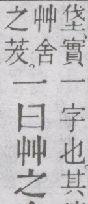 垡實一字也其
艸舍
之茇
一曰艸之